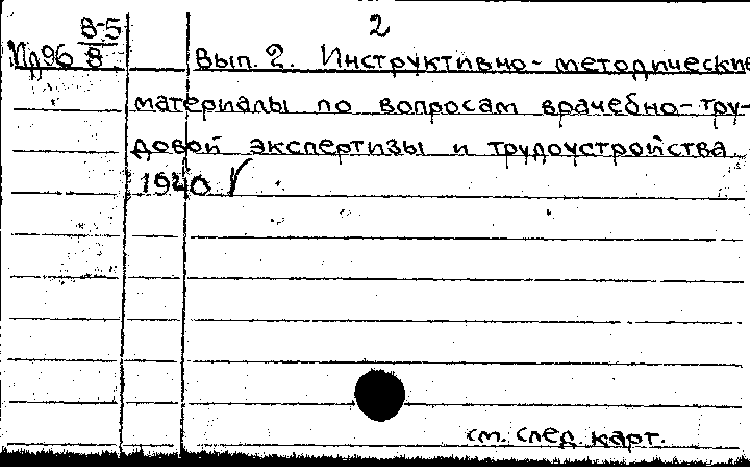 2
В-5
8
Вып. 2. Инструктивно-методические
материалы по вопросам врачебно-тру-
довой экспертизы и трудоустройства.
1940 √
см. след. карт.